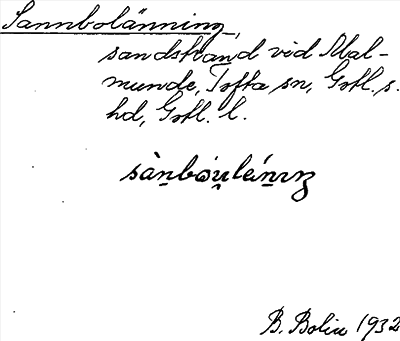 Sannbolänning,
sandstrand vid Mal-
munde, Tofta sn, Gotl. s.
hd, Gotl. l.
sànbóu̯léniŋ
B. Bolin 1932